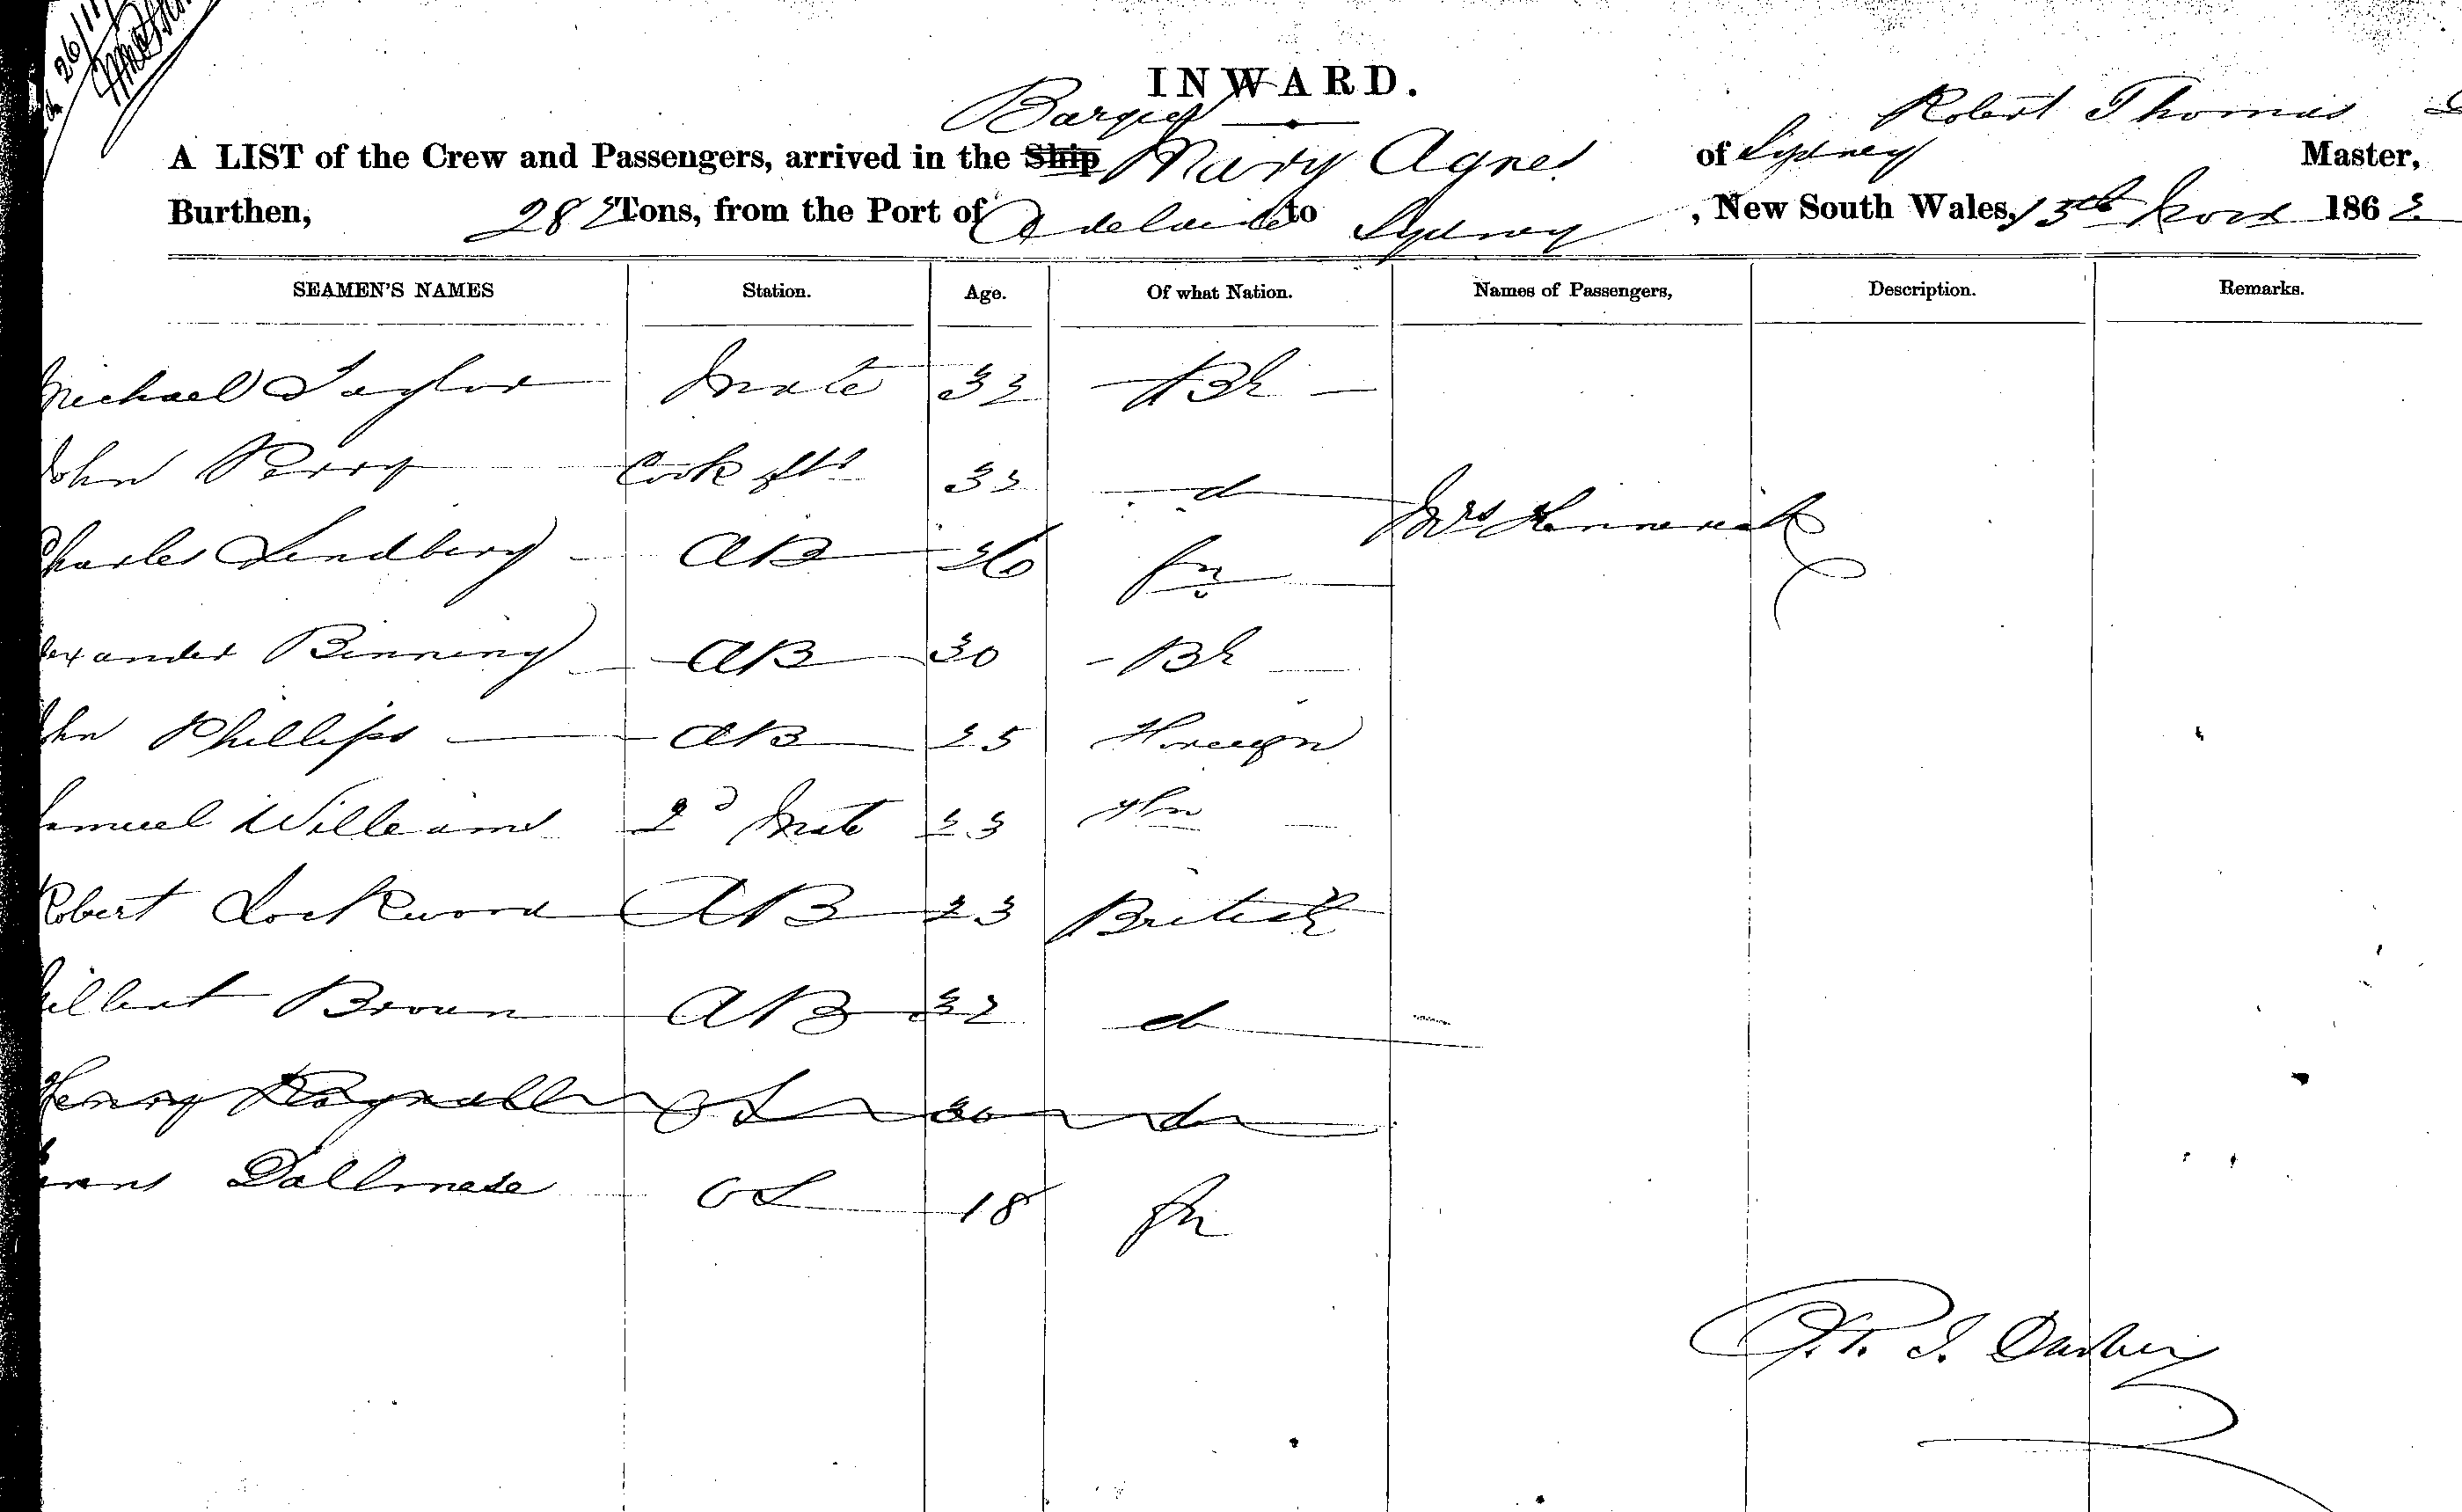 26/11
INWARD.
Robert Thomas
A LIST of the Crew and Passengers, arrived in the Ship Mary Agnes of Sydney Master,
Burthen, 282 Tons, from the Port of Adelaide to Sydney, New South Wales, 13th 1862
SEAMEN'S NAMES Station. Age. Of what Nation. Names of Passengers, Description. Remarks.
Michael Taylor Mate 32 Br
John Perry Cook 33 d Mrs
Charles Lindberg AB 26 fn
exander Binning AB 30 Br
John Phillips AB 25 Foreign
Samuel Williams 2d Mate 23 Fn
Robert Lockwood AB 23 British
Brown AB 32 d
Henry OS do
OS 18 fn